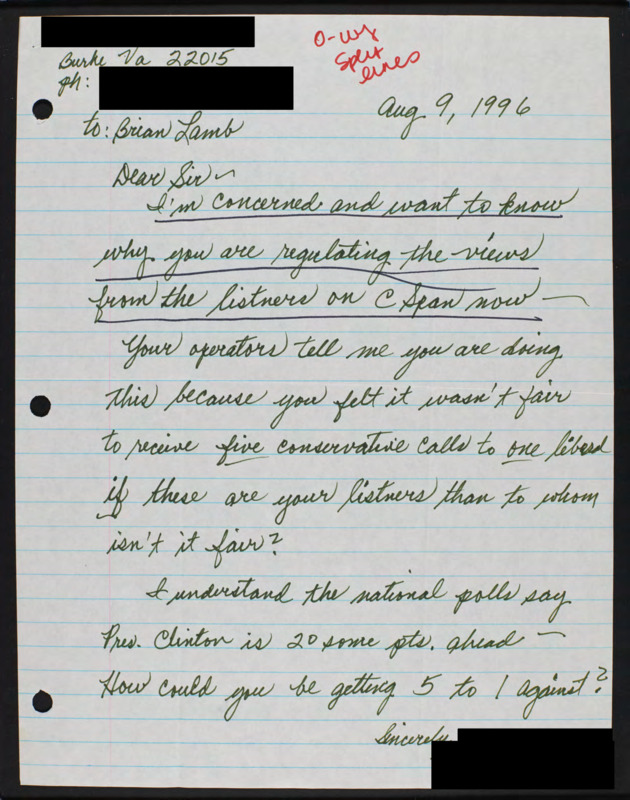 Burke Va 22015
ph:
O-wy
Split
lines
Aug 9, 1996
to: Brian Lamb
Dear Sir~
I'm concerned and want to know
why you are regulating the views
from the listners on C Span now —
Your operators tell me you are doing
this because you felt it wasn't fair
to receive five conservative calls to one liberal
if these are your listners than to whom
isn't it fair?
I understand the national polls say
Pres. Clinton is 20 some pts. ahead —
How could you be getting 5 to 1 against?
Sincerely